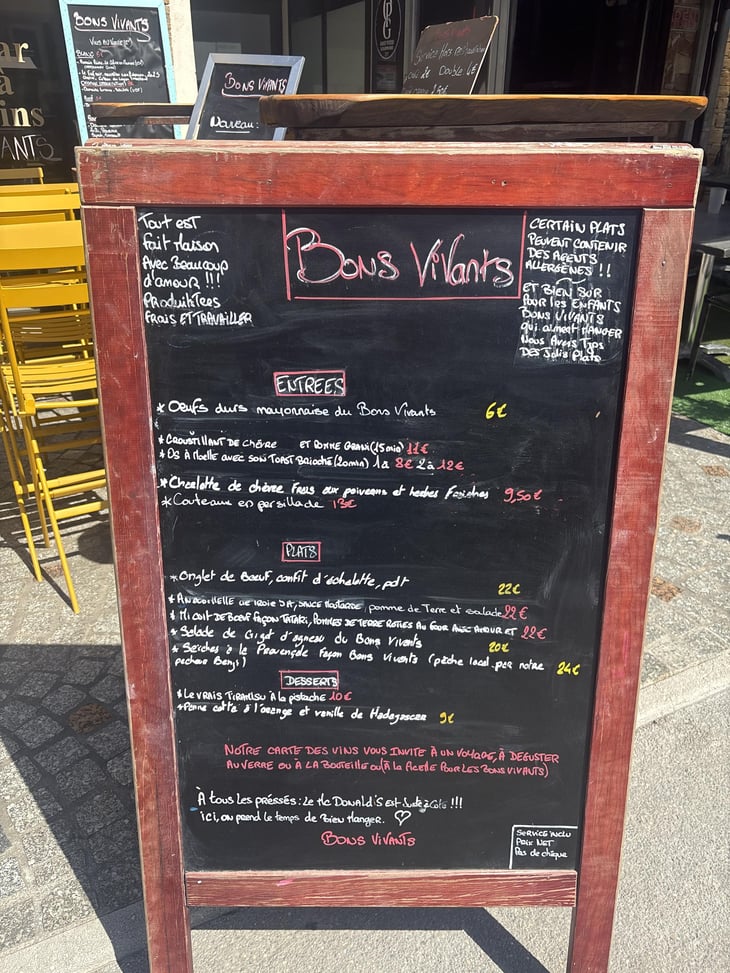 BONS VIVANTS
BONS VIVANTS
Nouveau:
VANTS
Tout est
Fait Maison
Avec Beaucoup
d'amour !!!
Produits Tres
FRAIS ET TRAVAILLER
BONS ViVants
CERTAIN PLATS
PEUVENT CONTENIR
DES AGENTS
ALLERGÈNES !!
ET BIEN SUR
POUR LES ENFANTS
BONS VIVANTS
qui aiment MANGER
Nous Avons Tjps
DES Jolis Plats
ENTREES
* Oeufs durs mayonnaise du Bons Vivants 6€
* CROUSTILLANT DE CHÈVRE ET POMME GRANI (15min) 11€
* OS À Moelle AVEC SON TOAST BRIOCHÉ (20min) 1à 8€ 2à 12€
* Choelette de chèvre Frais aux poivrons et herbes Fraiches 9,50€
* Couteaux en persillade 13€
PLATS
* Onglet de Boeuf, confit d'échalotte, pdt 22€
* ANDOUILLETTE DE TROIE 5A, SAUCE MOUTARDE, pomme de Terre et salade 22€
* MI CUIT DE BOEUF FAÇON TATAKI, POMMES DE TERRE ROTIES AU FOUR AVEC AMOUR ET 22€
* Salade de Gigot d'agneau du Bons Vivants 20€
* Seiches à la Provençale Façon Bons Vivants (pêche local par notre 24€
pecheur Benji)
DESSERTS
* LE VRAIS TIRAMISU À la pistache 10€
* Panna cotta à l'orange et vanille de Madagascar 9€
NOTRE CARTE DES VINS VOUS INVITE À UN VOYAGE, À DEGUSTER
AU VERRE OU À LA BOUTEILLE OU (À la Ficelle POUR LES BONS VIVANTS)
À tous les pressés : Le Mc DONALD'S EST Juste à Coté !!!
ici, on prend le temps de Bien Manger.
BONS VIVANTS
SERVICE INCLU
PRIX NET
Pas de chèque